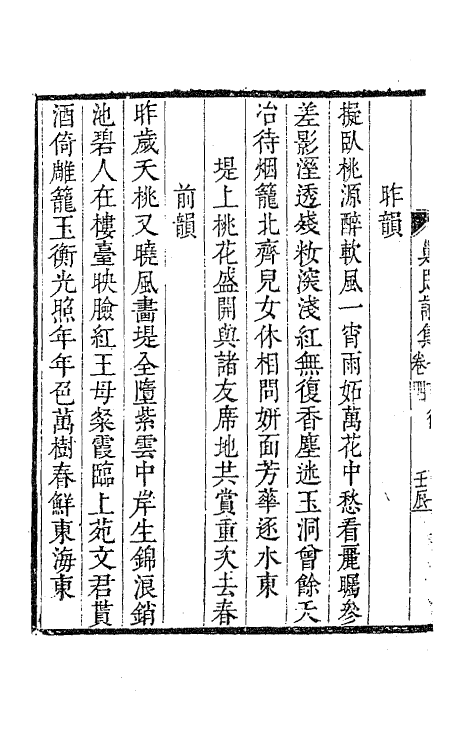 昨韻
擬臥桃源醉軟風一宵雨妬萬花中愁看麗矚參
差影溼透殘妝深淺紅無復香塵迷玉洞曾餘夭
冶待烟籠北齊兒女休相問妍面芳華逐水東
堤上桃花盛開與諸友席地共賞重次去春
前韻
昨歲夭桃又曉風畵堤全墮紫雲中岸生錦浪銷
池碧人在樓臺映臉紅王母粲霞臨上苑文君貰
酒倚雕籠玉衡光照年年色萬樹春鮮東海東
詩集
卷
壬辰